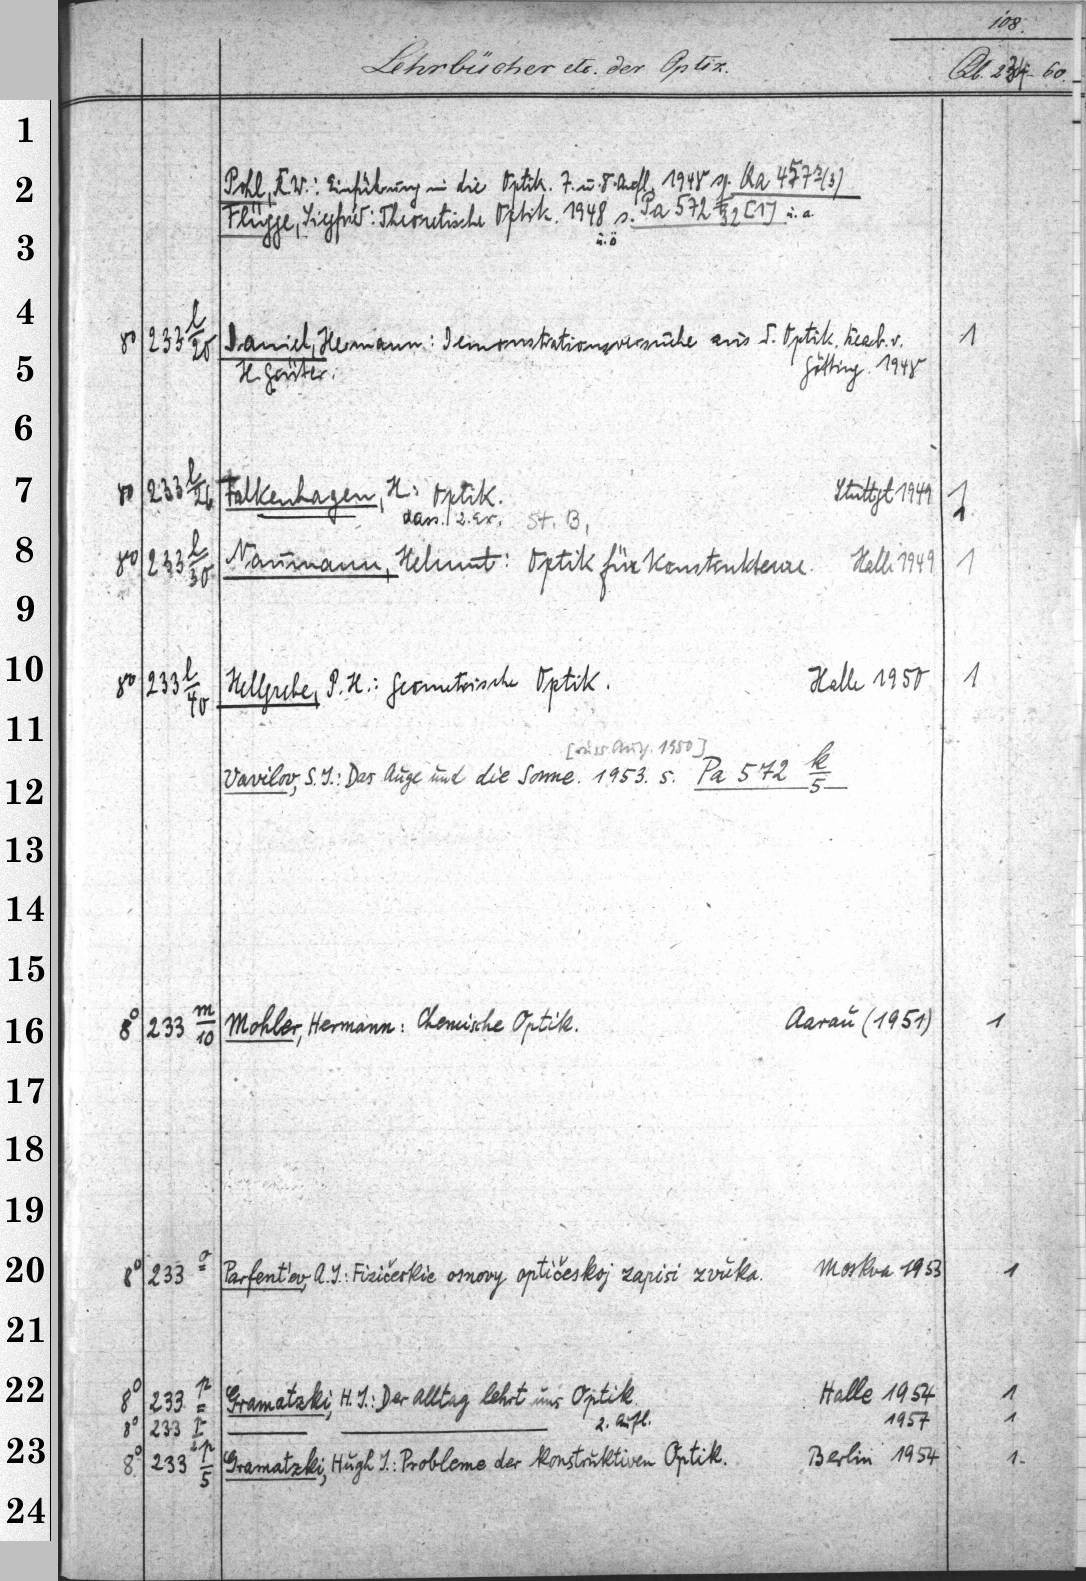 108.
Lehrbücher etc. der Optik.
Qb. 234-60.
1
Pohl, R.W.: Einführung in die Optik. 7. u. 8. Aufl. 1948 s. Qa 4577(3)
2
Flügge, Siegfried: Theoretische Optik. 1948 s. Pa 572 32 [1] u. a
u. ö
3
4
8° 233 l/20 Daniel, Hermann: Demonstrationsversuche aus d. Optik. Bearb. v. 1
H. Götting. 1948
5
6
7 8° 233 l/26 Falkenhagen, H: Optik. Stuttgt 1949 1
dass. 2. Ex. St. B, 1
8 8° 233 l/30 Naumann, Helmut: Optik für Konstrukteure. Halle 1949 1
9
10 8° 233 l/40 Hellgrebe, P. H.: Geometrische Optik. Halle 1950 1
11
[russ. Ausg. 1950]
Vavilov, S. J.: Das Auge und die Sonne. 1953. s. Pa 572 k/5
12
13
14
15
16 8° 233 m/10 Mohler, Hermann: Chemische Optik. Aarau (1951) 1
17
18
19
20 8° 233 o Parfent'ev, A. J.: Fizičeskie osnovy optičeskoj zapisi zvuka. Moskva 1953 1
21
22 8° 233 p Gramatzki, H. J.: Der Alltag lehrt uns Optik. Halle 1954 1
8° 233 p 2. Aufl. 1957 1
23 8° 233 p/5 Gramatzki, Hugh J.: Probleme der konstruktiven Optik. Berlin 1954 1
24